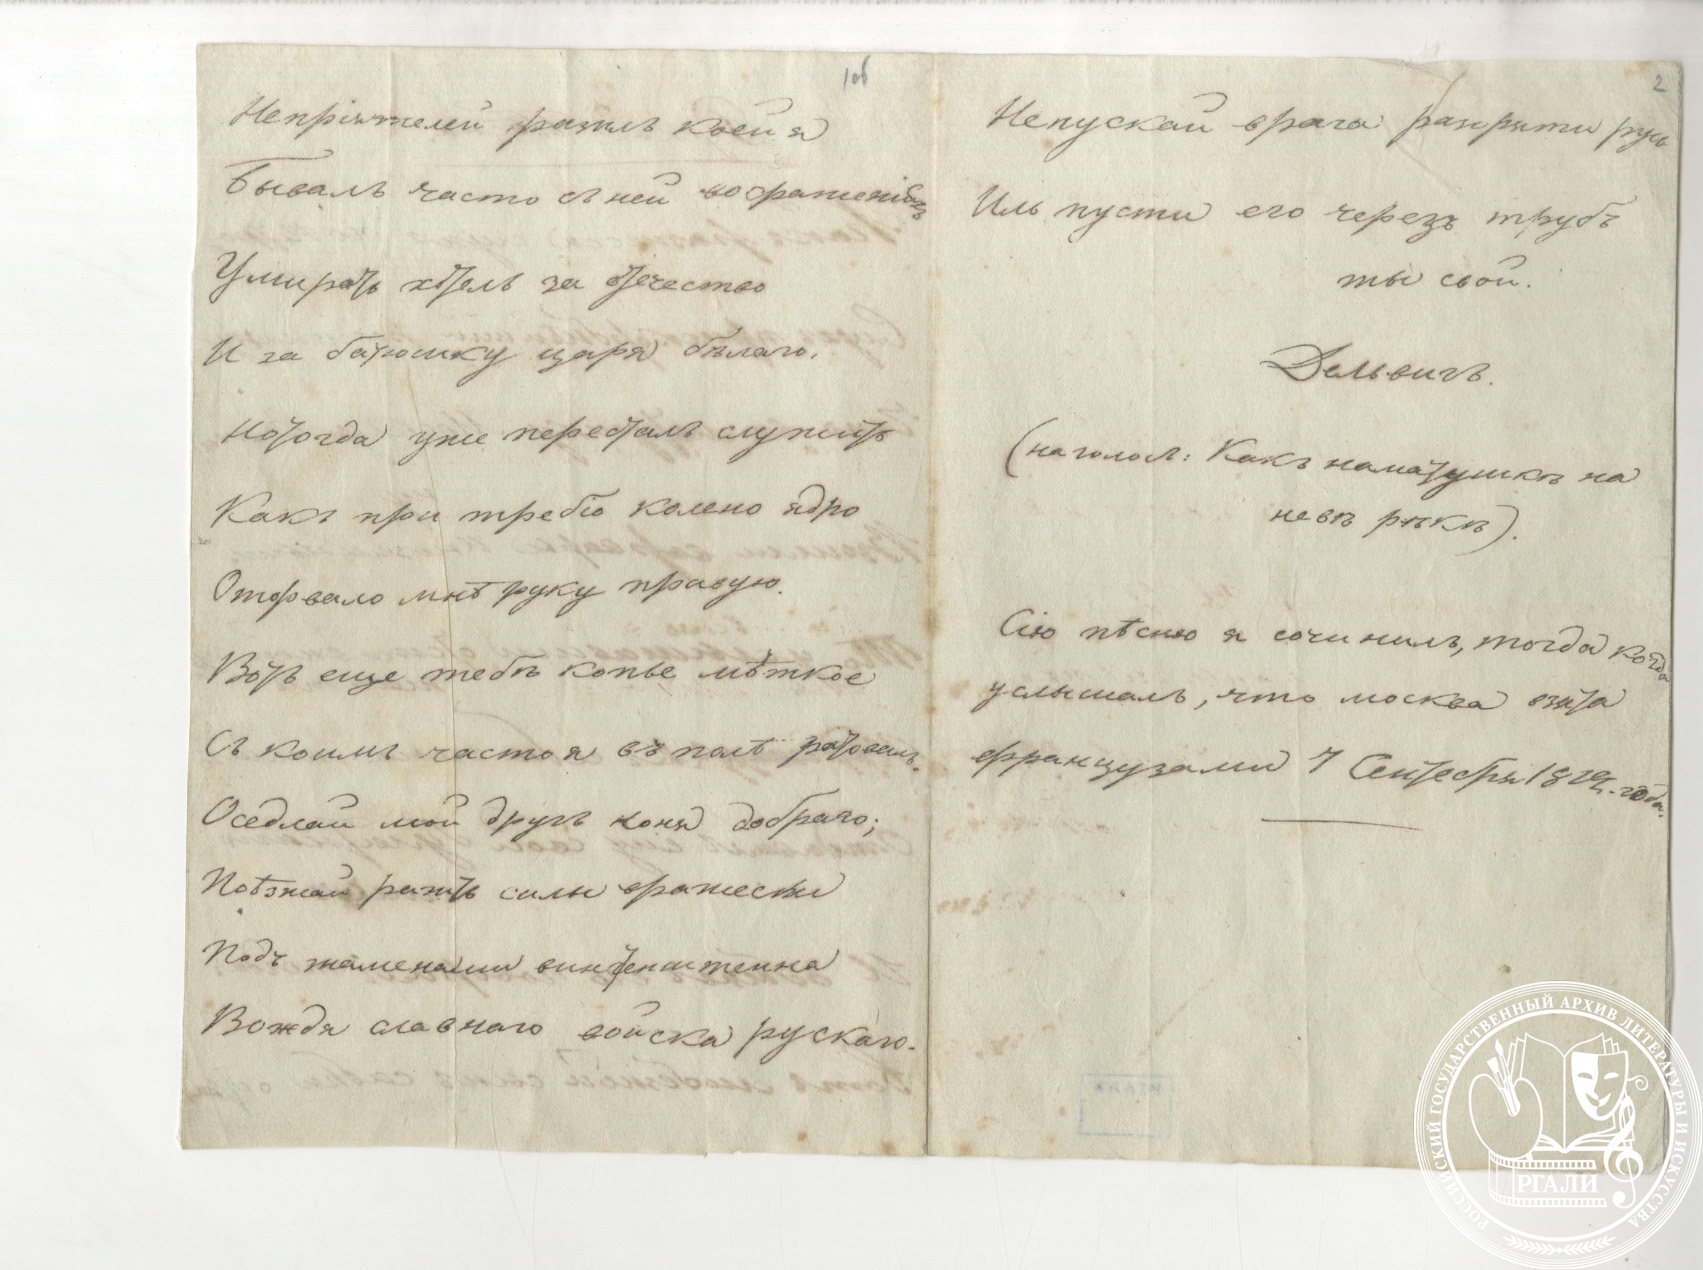 1об
Непріятелей разилъ коей я
Бывалъ часто съ ней во сраженіяхъ
Умирать хотелъ за отечество
И за батюшку царя белаго.
Но тогда уже пересталъ служить
Какъ при требіо колено ядро
Оторвало мнѣ руку правую.
Вотъ еще тебѣ копье мѣткое
Съ коимъ часто я въ полѣ ратовалъ.
Оседлай мой другъ коня добраго;
Поѣзжай разить силы вражески
Подъ знаменами винтенштеина
Вождя славнаго войска рускаго.
2
Непускай врага разряти русь
Иль пусти его черезъ трупъ
ты свой.
Дельвигъ.
(на голос: Какъ на матушкѣ на
невѣ рѣкѣ).
Сію пѣсню я сочинилъ, тогда когда
услышалъ, что москва взята
французами 7 Сентебря 1812. года.
РГАЛИ
РОССИЙСКИЙ ГОСУДАРСТВЕННЫЙ АРХИВ ЛИТЕРАТУРЫ И ИСКУССТВА
РГАЛИ